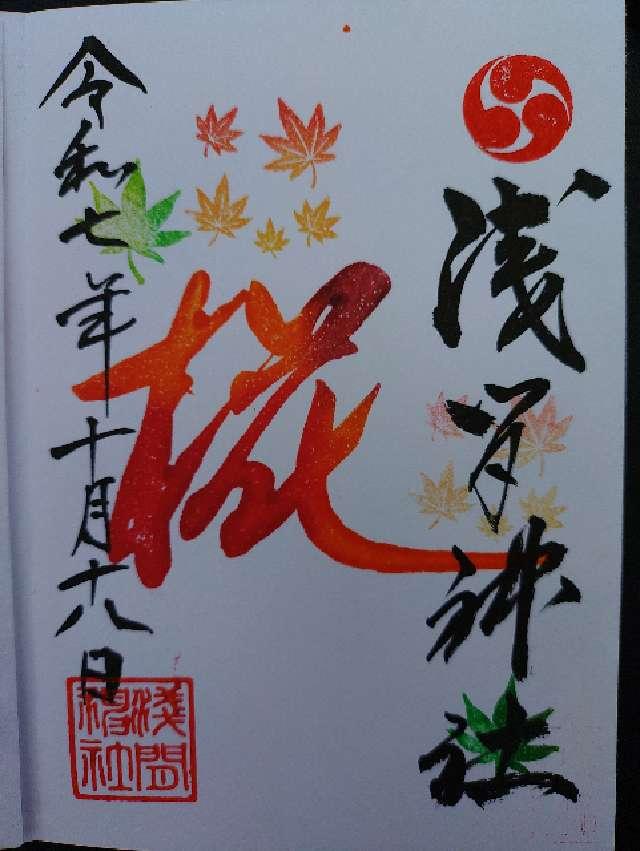 浅間神社
椛
令和七年十月十八日
淺間
神社